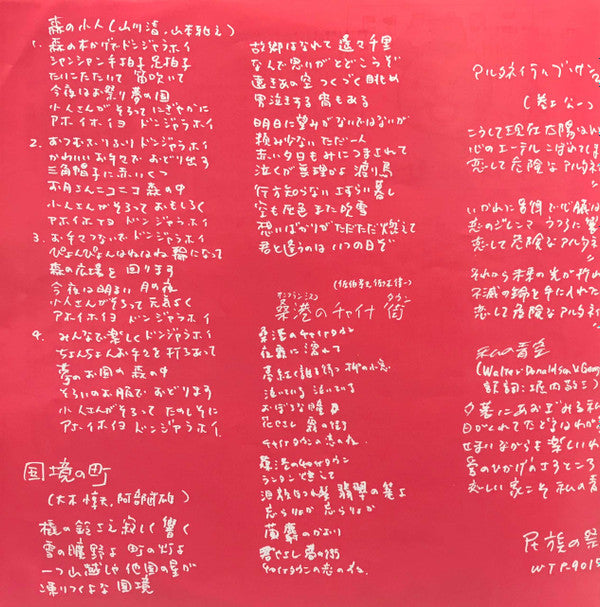 森の小人(山川清,山本雅之)
1. 森の木かげでドンジャラホイ
シャンシャン手拍子足拍子
たいこたたいて 笛吹いて
今夜はお祭り夢の国
小人さんがそろって にぎやかに
アホイホイヨ ドンジャラホイ
2. おつむふりふりドンジャラホイ
かわいいお手々で おどり出す
三角帽子に赤いくつ
お月さんニコニコ森の中
小人さんがそろって おもしろく
アホイホイヨ ドンジャラホイ
3. お手々つないでドンジャラホイ
ぴょんぴょんはねはね 輪になって
森の広場を 回ります
今夜は明るい 月の夜
小人さんがそろって 元気よく
アホイホイヨ ドンジャラホイ
4. みんなで楽しくドンジャラホイ
ちょんちょんお手々を打ちあって
夢のお国の 森の中
そろいのお服で おどります
小人さんがそろって たのしそに
アホイホイヨ ドンジャラホイ
国境の町
(大木惇夫,阿部武雄)
橇の鈴さえ寂しく 響く
雪の曠野よ 町の灯よ
一つ山越しゃ 他国の星が
凍りつくよな 国境
故郷はなれて 遥々千里
なんで思いが とどこうぞ
遠きあの空 つくづく眺め
男泣きする 宵もある
明日に望みがないではないが
頼み少ない ただ一人
赤い夕日も身につまされて
泣くが無理かよ 渡り鳥
行方知らない さすらい暮し
空も灰色 また吹雪
想いばかりが ただただ燃えて
君と逢うのは いつの日ぞ
桑港のチャイナ街
サンフランシスコ タウン
桑港のチャイナタウン
夜霧に濡れて
夢紅く誰を待つ 柳の小窓
泣いている 泣いている
おぼろな瞳よ
花やさし 霧の街
チャイナタウンの恋の夜
桑港のチャイナタウン
ランタンもえて
忘らりょか 忘らりょか
蘭麝のかおり
君やさし 夢の街
チャイナタウンの恋の夜
アルタネイティヴ・サン
(巻上公一)
こうして現在太陽は
心のエーテルこぼれて
恋して危険なアルタネイ
恋して危険なアルタネ
それから未来の光が
不滅の鍵を手に入れた
恋して危険なアルタネイ
私の青空
(Walter Donaldson & Geo
訳詞:堀内敬三)
夕暮にあおぎみる
日がくれてたどるはわが
せまいながらも楽しいわ
愛のひかげのさすところ
恋しい家こそ 私の青
民族の祭
WTP-9015